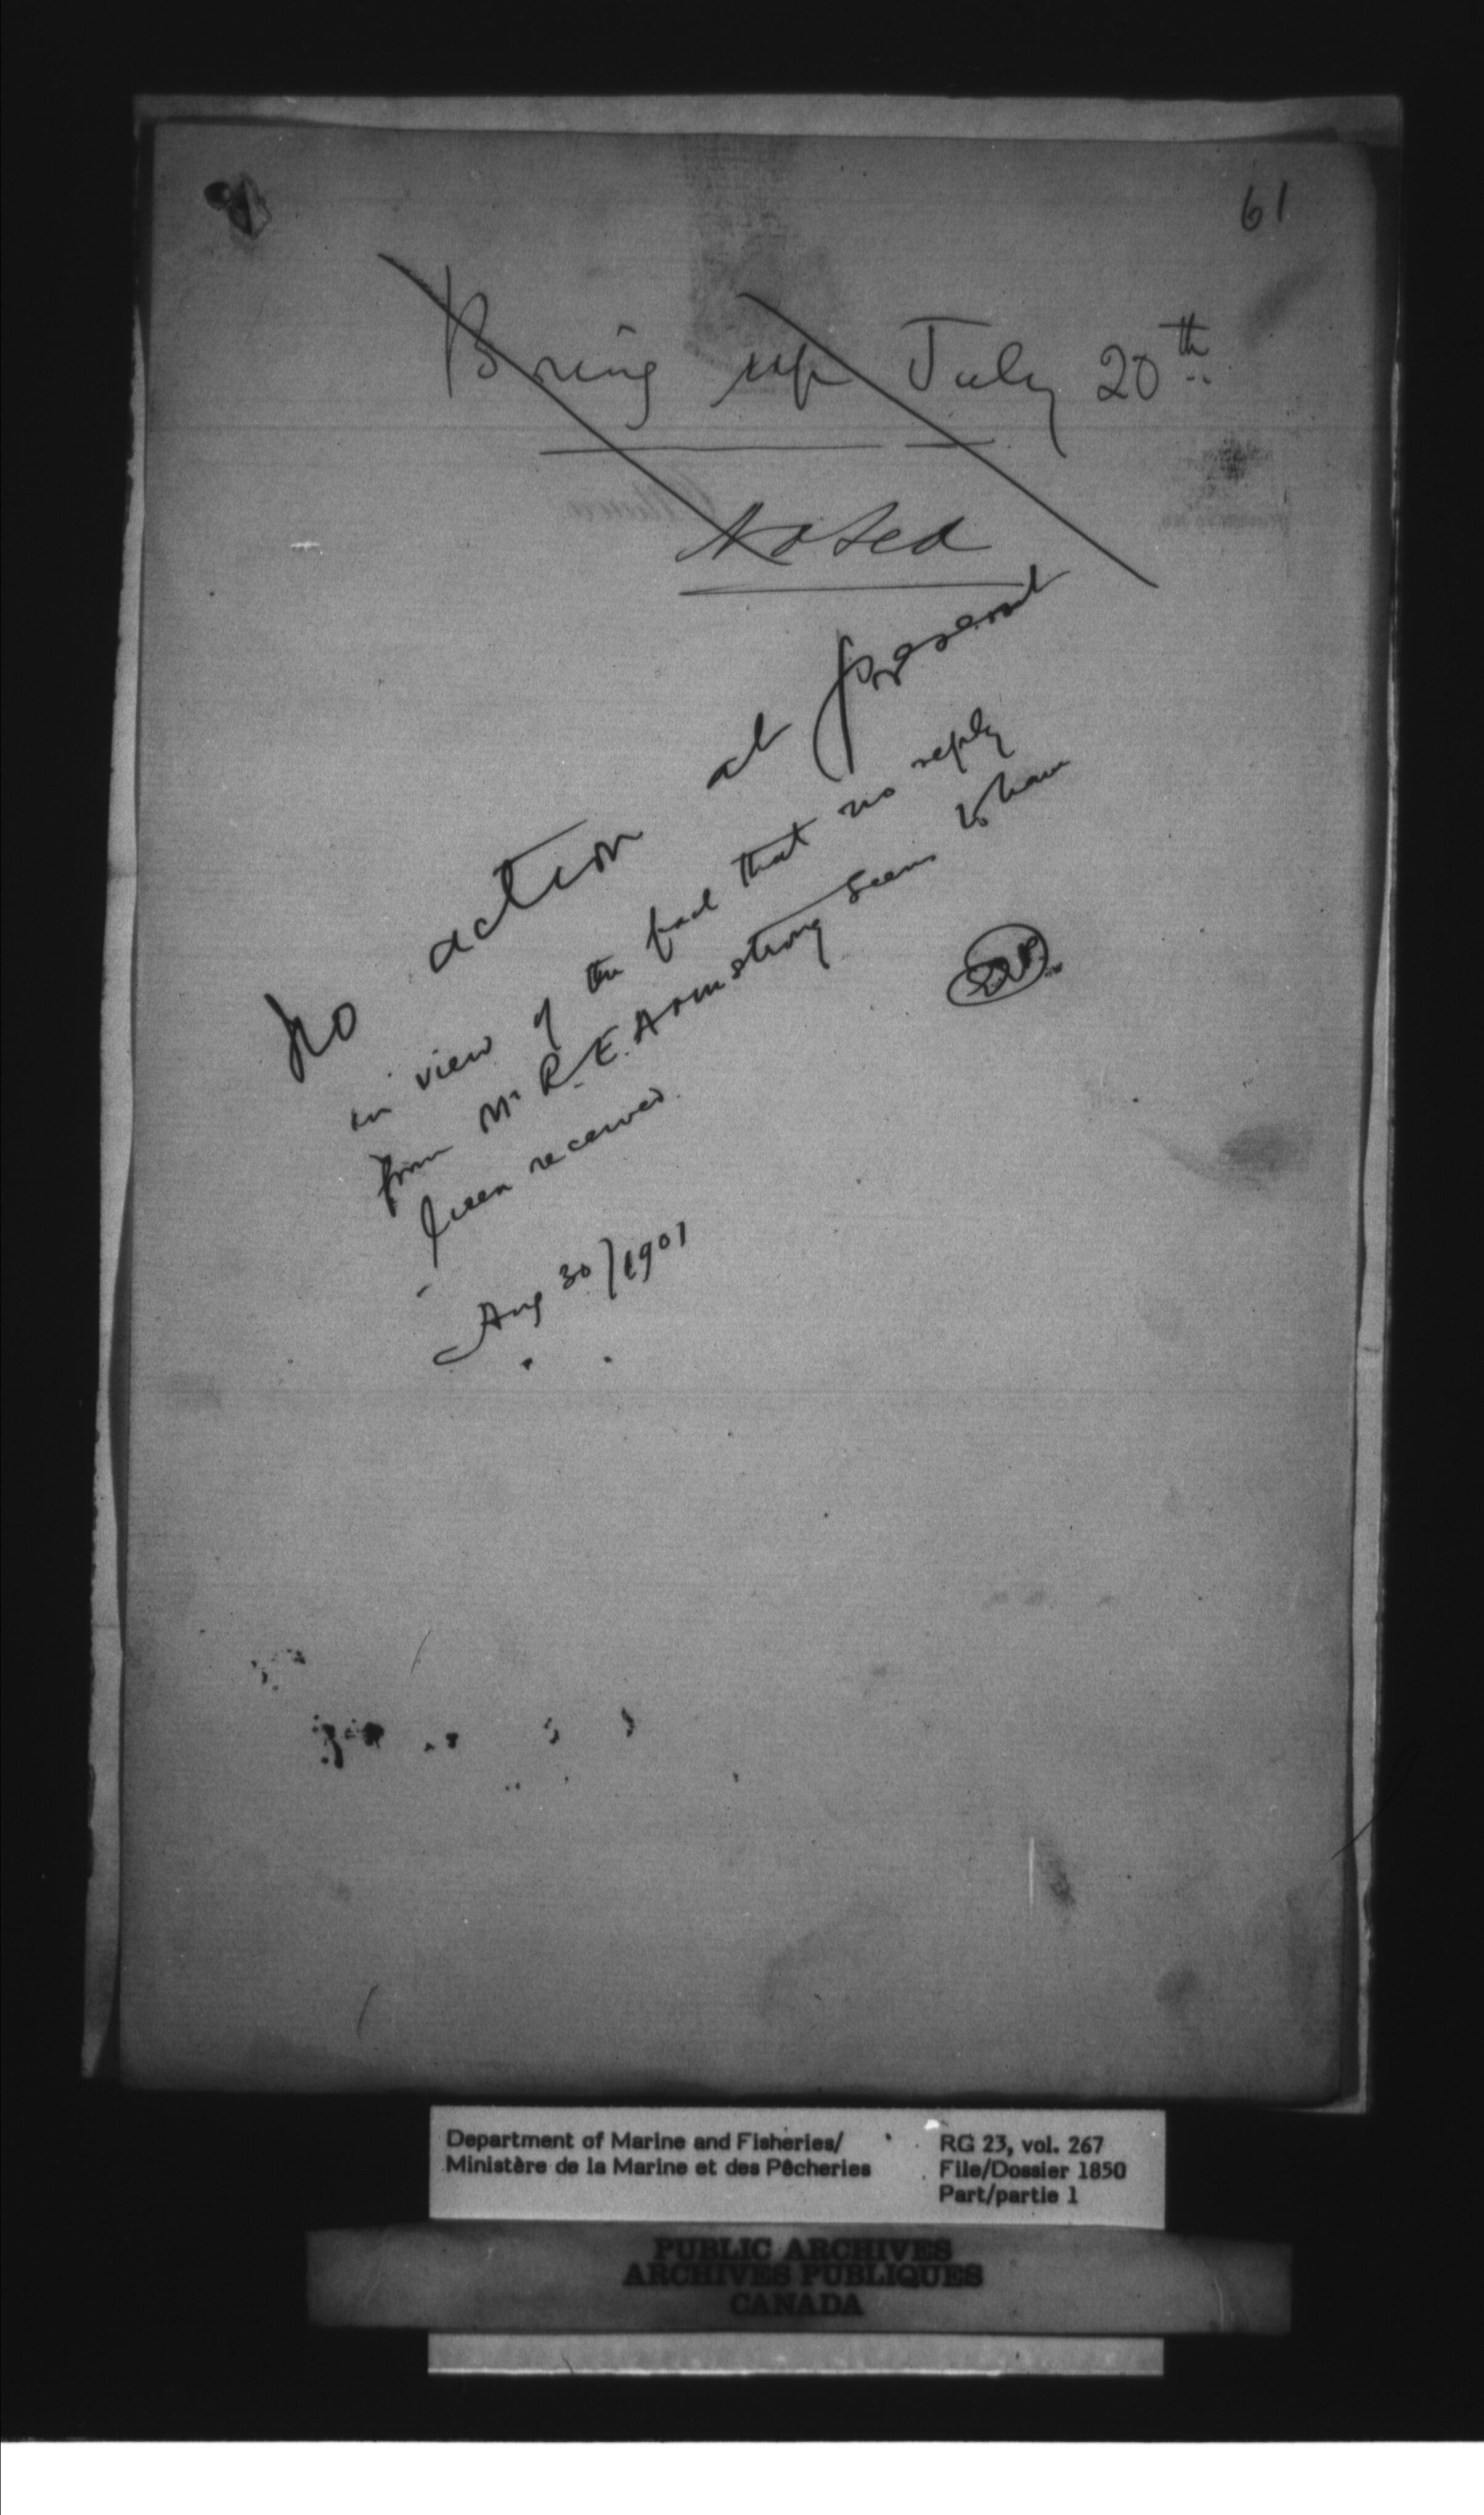 61
Bring up July 20th
Noted
No action at present
in view of the fact that no reply
from Mr R. E. Armstrong seems to have
been received.
Aug 30/1901
Department of Marine and Fisheries/
Ministère de la Marine et des Pêcheries
RG 23, vol. 267
File/Dossier 1850
Part/partie 1
PUBLIC ARCHIVES
ARCHIVES PUBLIQUES
CANADA